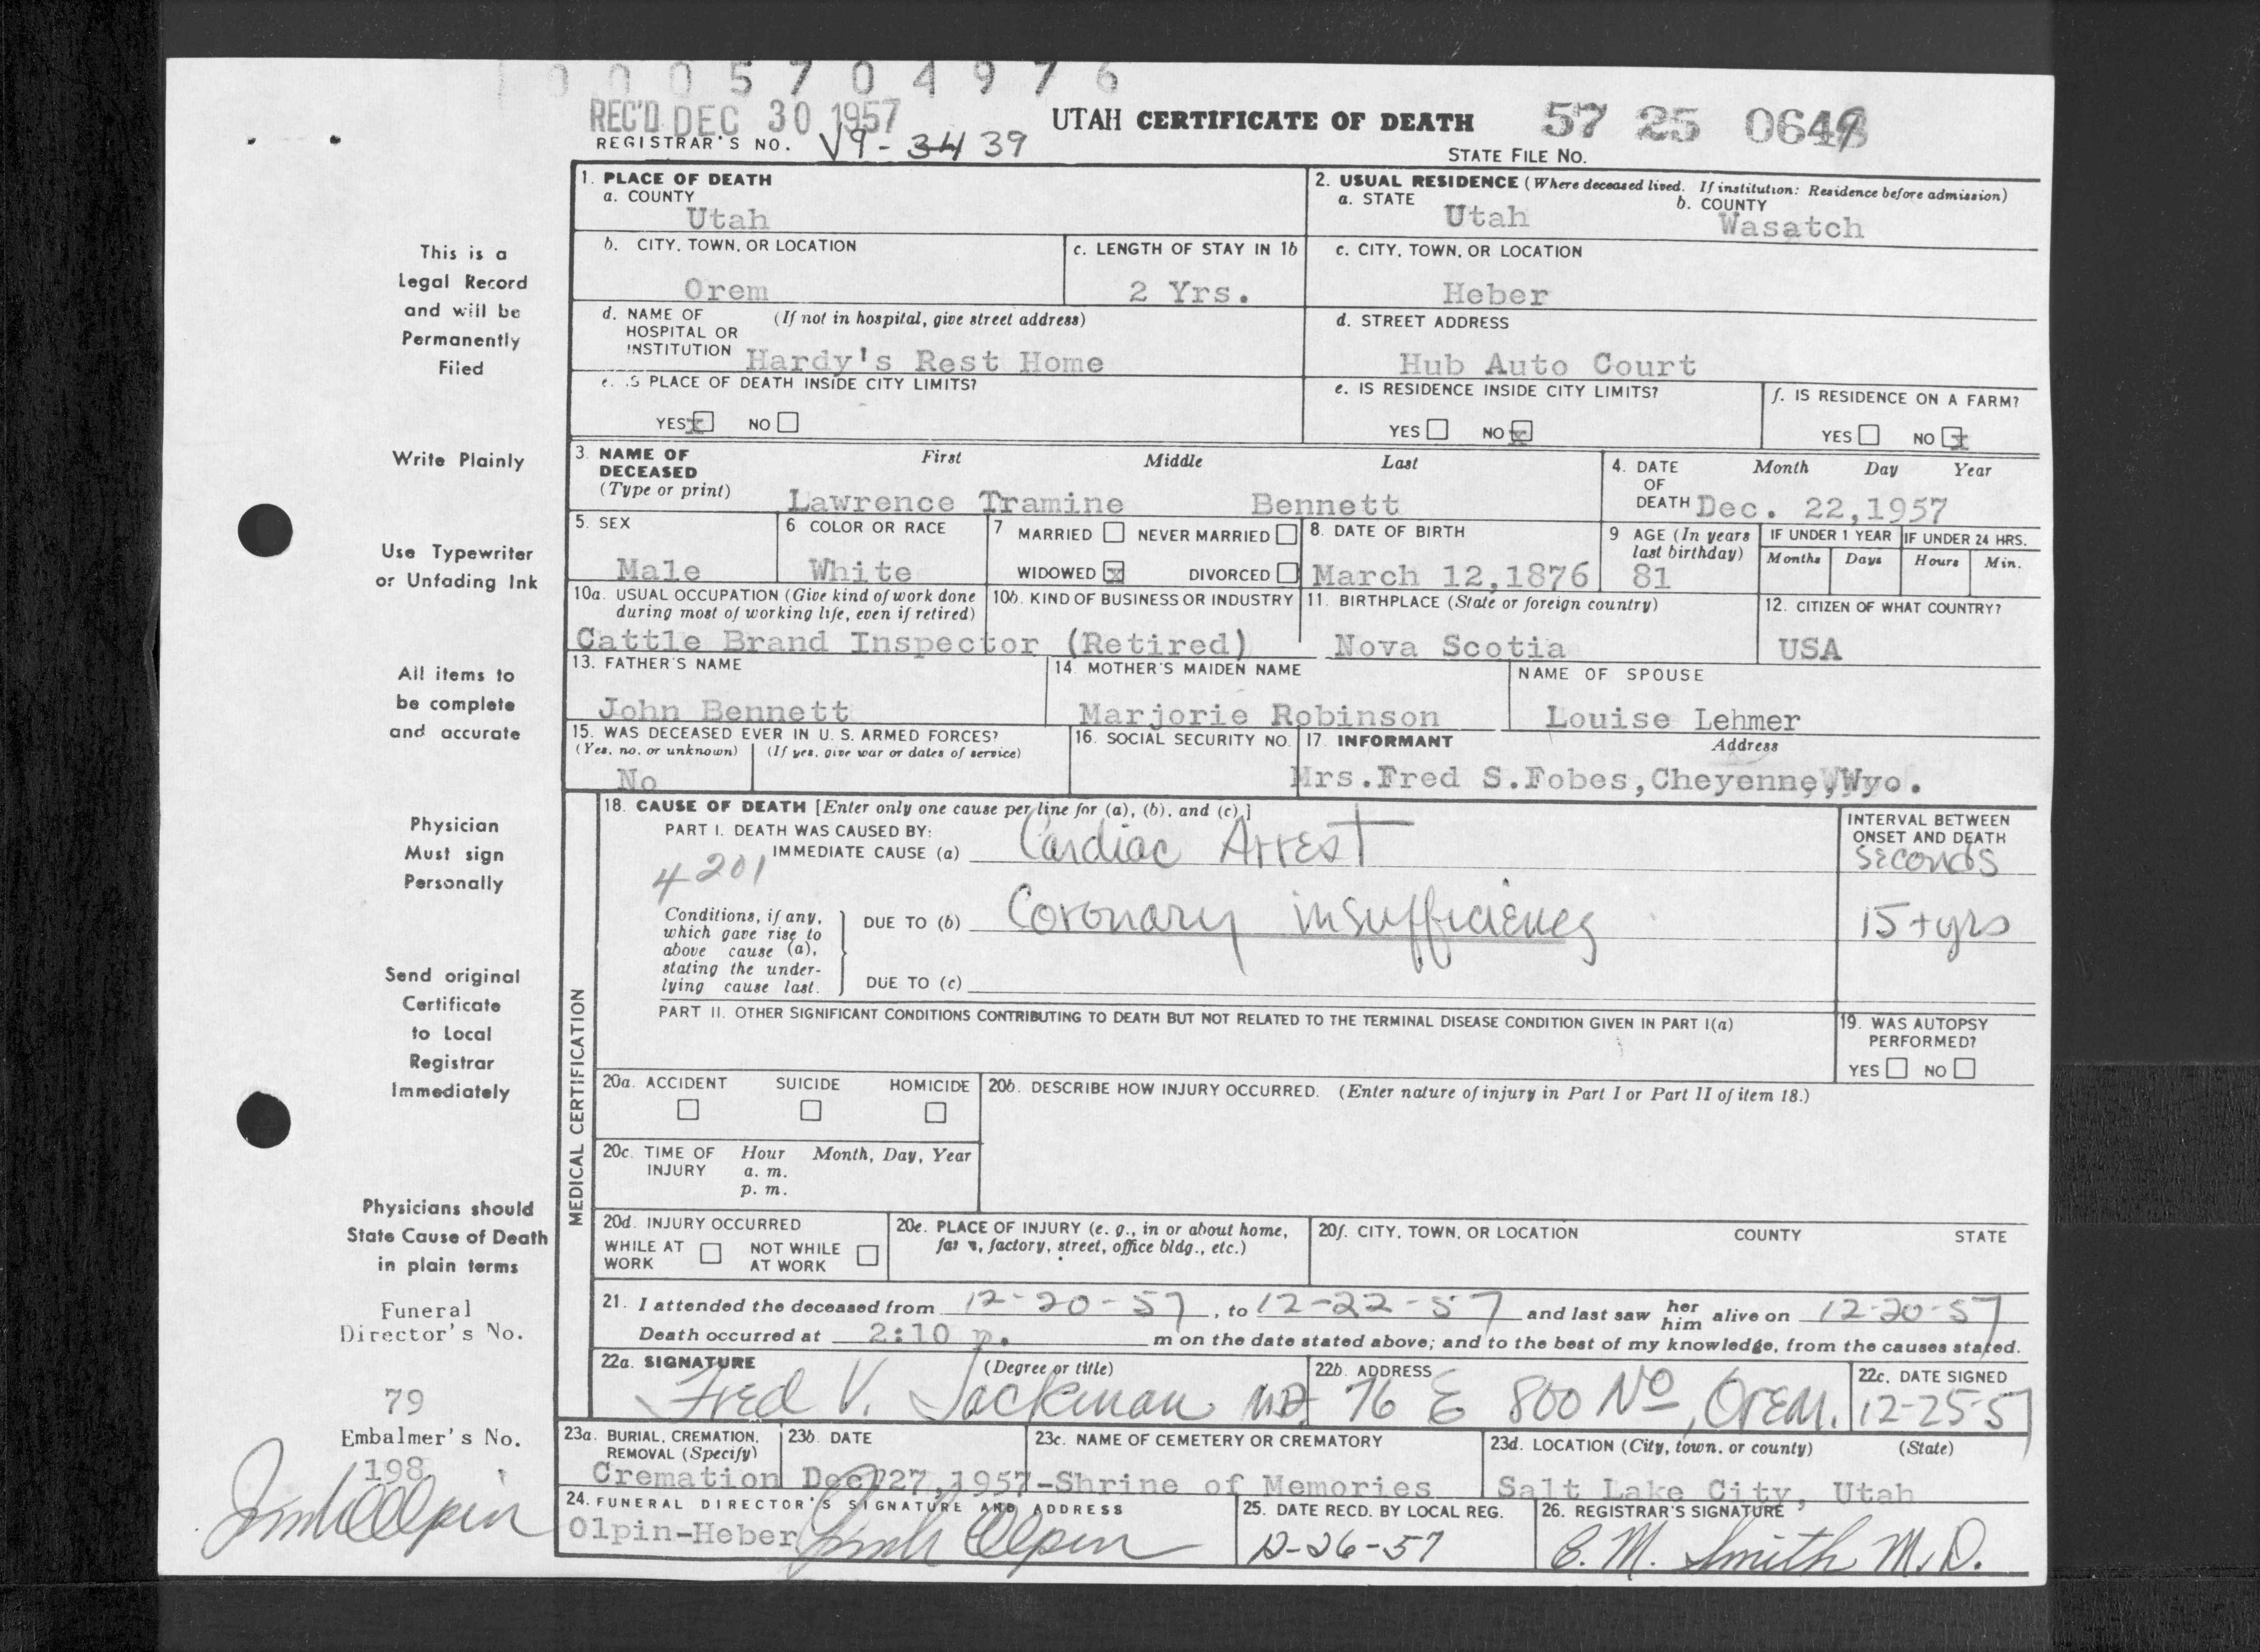 0005704976
REC'D DEC 30 1957
UTAH CERTIFICATE OF DEATH 57 25 064
REGISTRAR'S NO. V9-34 39
STATE FILE NO.
This is a
Legal Record
and will be
Permanently
Filed
Write Plainly
Use Typewriter
or Unfading Ink
All items to
be complete
and accurate
Physician
Must sign
Personally
Send original
Certificate
to Local
Registrar
Immediately
Physicians should
State Cause of Death
in plain terms
Funeral
Director's No.
79
Embalmer's No.
198
1. PLACE OF DEATH
a. COUNTY
Utah
2. USUAL RESIDENCE (Where deceased lived. If institution: Residence before admission)
a. STATE Utah b. COUNTY Wasatch
b. CITY, TOWN, OR LOCATION
Orem
c. LENGTH OF STAY IN 1b
2 Yrs.
c. CITY, TOWN, OR LOCATION
Heber
d. NAME OF (If not in hospital, give street address)
HOSPITAL OR
INSTITUTION Hardy's Rest Home
d. STREET ADDRESS
Hub Auto Court
e. IS PLACE OF DEATH INSIDE CITY LIMITS?
YES x NO
e. IS RESIDENCE INSIDE CITY LIMITS?
YES NO x
f. IS RESIDENCE ON A FARM?
YES NO x
3. NAME OF First Middle Last
DECEASED
(Type or print) Lawrence Tramine Bennett
4. DATE Month Day Year
OF
DEATH Dec. 22,1957
5. SEX
Male
6 COLOR OR RACE
White
7 MARRIED NEVER MARRIED
WIDOWED x DIVORCED
8. DATE OF BIRTH
March 12,1876
9 AGE (In years
last birthday)
81
IF UNDER 1 YEAR IF UNDER 24 HRS.
Months Days Hours Min.
10a. USUAL OCCUPATION (Give kind of work done
during most of working life, even if retired)
10b. KIND OF BUSINESS OR INDUSTRY
Cattle Brand Inspector (Retired)
11. BIRTHPLACE (State or foreign country)
Nova Scotia
12. CITIZEN OF WHAT COUNTRY?
USA
13. FATHER'S NAME
John Bennett
14. MOTHER'S MAIDEN NAME
Marjorie Robinson
NAME OF SPOUSE
Louise Lehmer
15. WAS DECEASED EVER IN U. S. ARMED FORCES?
(Yes, no, or unknown) (If yes, give war or dates of service)
No
16. SOCIAL SECURITY NO.
17. INFORMANT Address
Mrs.Fred S.Fobes,Cheyenne,Wyo.
MEDICAL CERTIFICATION
18. CAUSE OF DEATH [Enter only one cause per line for (a), (b), and (c).]
PART I. DEATH WAS CAUSED BY:
IMMEDIATE CAUSE (a) Cardiac Arrest
4201
INTERVAL BETWEEN
ONSET AND DEATH
Seconds
Conditions, if any,
which gave rise to
above cause (a),
stating the under-
lying cause last.
DUE TO (b) Coronary insufficiency
15+yrs
DUE TO (c)
PART II. OTHER SIGNIFICANT CONDITIONS CONTRIBUTING TO DEATH BUT NOT RELATED TO THE TERMINAL DISEASE CONDITION GIVEN IN PART I(a)
19. WAS AUTOPSY
PERFORMED?
YES NO
20a. ACCIDENT SUICIDE HOMICIDE
20b. DESCRIBE HOW INJURY OCCURRED. (Enter nature of injury in Part I or Part II of item 18.)
20c. TIME OF Hour Month, Day, Year
INJURY a. m.
p. m.
20d. INJURY OCCURRED
WHILE AT NOT WHILE
WORK AT WORK
20e. PLACE OF INJURY (e. g., in or about home,
farm, factory, street, office bldg., etc.)
20f. CITY, TOWN, OR LOCATION COUNTY STATE
21. I attended the deceased from 12-20-57, to 12-22-57 and last saw her him alive on 12-20-57
Death occurred at 2:10 p. m on the date stated above; and to the best of my knowledge, from the causes stated.
22a. SIGNATURE (Degree or title)
Fred V. Jackman M.D.
22b. ADDRESS
76 E 800 No, Orem.
22c. DATE SIGNED
12-25-57
23a. BURIAL, CREMATION,
REMOVAL (Specify)
Cremation
23b. DATE
Dec. 27,1957
23c. NAME OF CEMETERY OR CREMATORY
-Shrine of Memories
23d. LOCATION (City, town, or county) (State)
Salt Lake City, Utah
24. FUNERAL DIRECTOR'S SIGNATURE AND ADDRESS
Olpin-Heber Olpin
25. DATE RECD. BY LOCAL REG.
12-26-57
26. REGISTRAR'S SIGNATURE
C. M. Smith M.D.